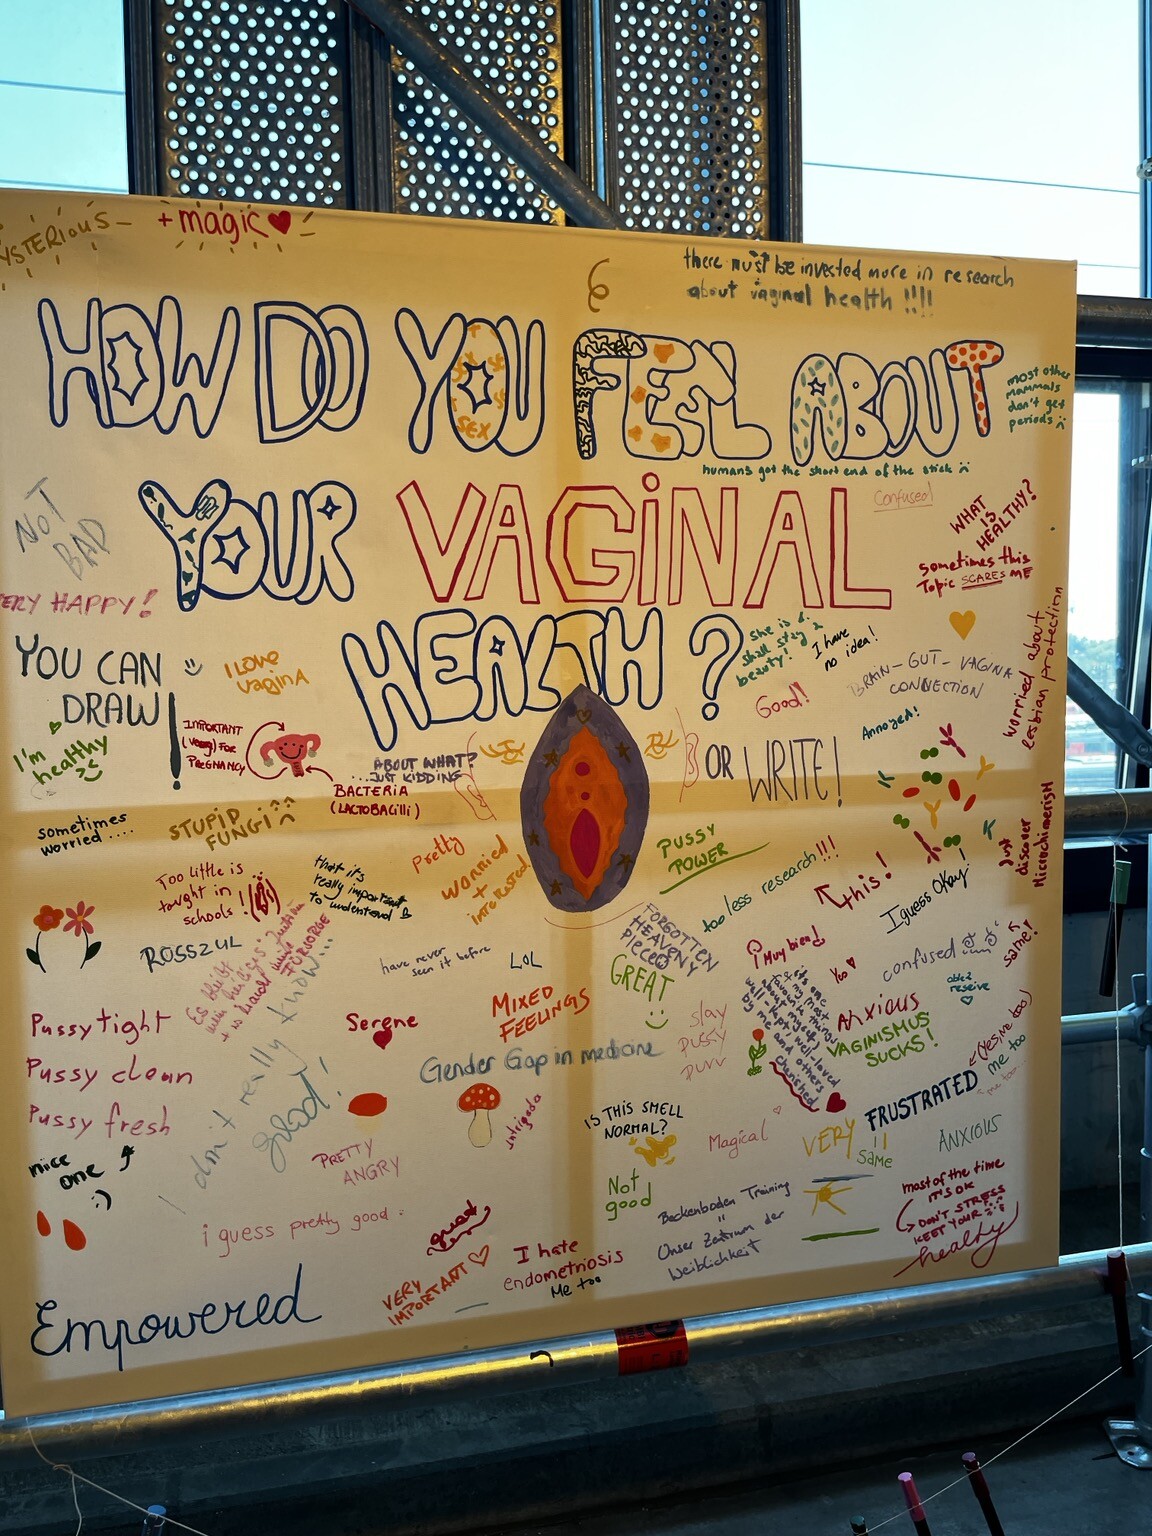 + magic
there must be invested more in research
about vaginal health !!!!
HOW DO YOU FEEL ABOUT
SEX
most other
mammals
don't get
periods :(
humans got the short end of the stick
YOUR VAGINAL
HEALTH?
Confused
WHAT
IS
HEALTHY?
sometimes this
Topic SCARES ME
NOT
BAD
HAPPY!
YOU CAN
DRAW!
I LOVE
VaginA
I'm
healthy
IMPORTANT
(Very) FOR
PREGNANCY
ABOUT WHAT?
...JUST KIDDING
BACTERIA
(LACTOBACilli)
she is a
beauty!
I have
no idea!
Good!
BRAIN-GUT-VAGINA
CONNECTION
worried about
lesbian protection
Annoyed!
OR WRITE!
sometimes
worried ....
STUPID
FUNGI
Pretty
worried
+
interested
PUSSY
POWER
too less research!!!
this!
I guess Okay!
Just
discover
Microchimerism
same!
Too little is
taught in
schools!
that it's
really important
to understand
ROSSZUL
Es bleibt
FÜRSORGE
have never
seen it before
LOL
FORGOTTEN
HEAVENLY
PIECE
GREAT
Muy bien!
Yes
confused
Pussy tight
Pussy clean
Pussy fresh
nice
one
:)
I don't really know...
glad!
Serene
MIXED
FEELINGS
Gender Gap in medicine
slay
pussy
purr
it's one
of my most
favourite things
about myself,
well-kept, well-loved
by me and others
cherished
Anxious
VAGINISMUS
SUCKS!
(Yes, me too)
me too
me too...
FRUSTRATED
VERY
!!
Same
ANXIOUS
intrigada
IS THIS SMELL
NORMAL?
Magical
PRETTY
ANGRY
Not
good
Beckenboden Training
=
Unser Zentrum der
Weiblichkeit
most of the time
IT'S OK
DON'T STRESS
KEEP YOUR
healthy
i guess pretty good.
good
VERY
IMPORTANT
I hate
endometriosis
Me too
Empowered